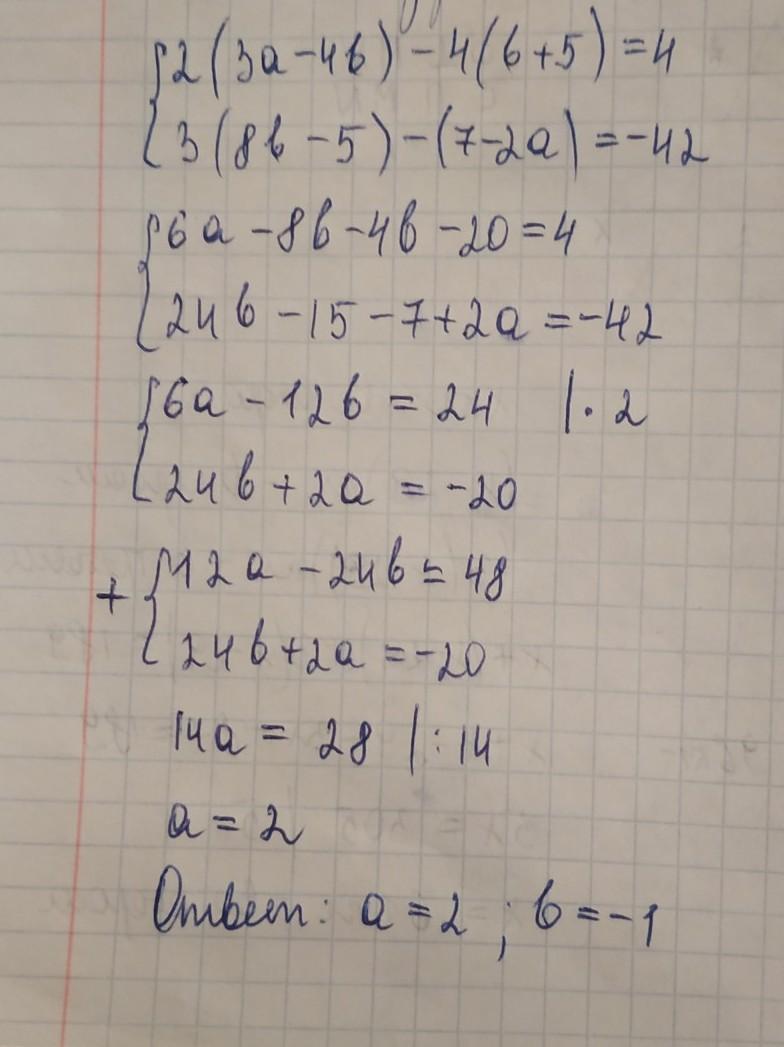 {2(3a-4b)-4(b+5)=4
{3(8b-5)-(7-2a)=-42
{6a-8b-4b-20=4
{24b-15-7+2a=-42
{6a-12b=24 |·2
{24b+2a=-20
+{12a-24b=48
{24b+2a=-20
14a=28 |:14
a=2
Ответ: a=2; b=-1